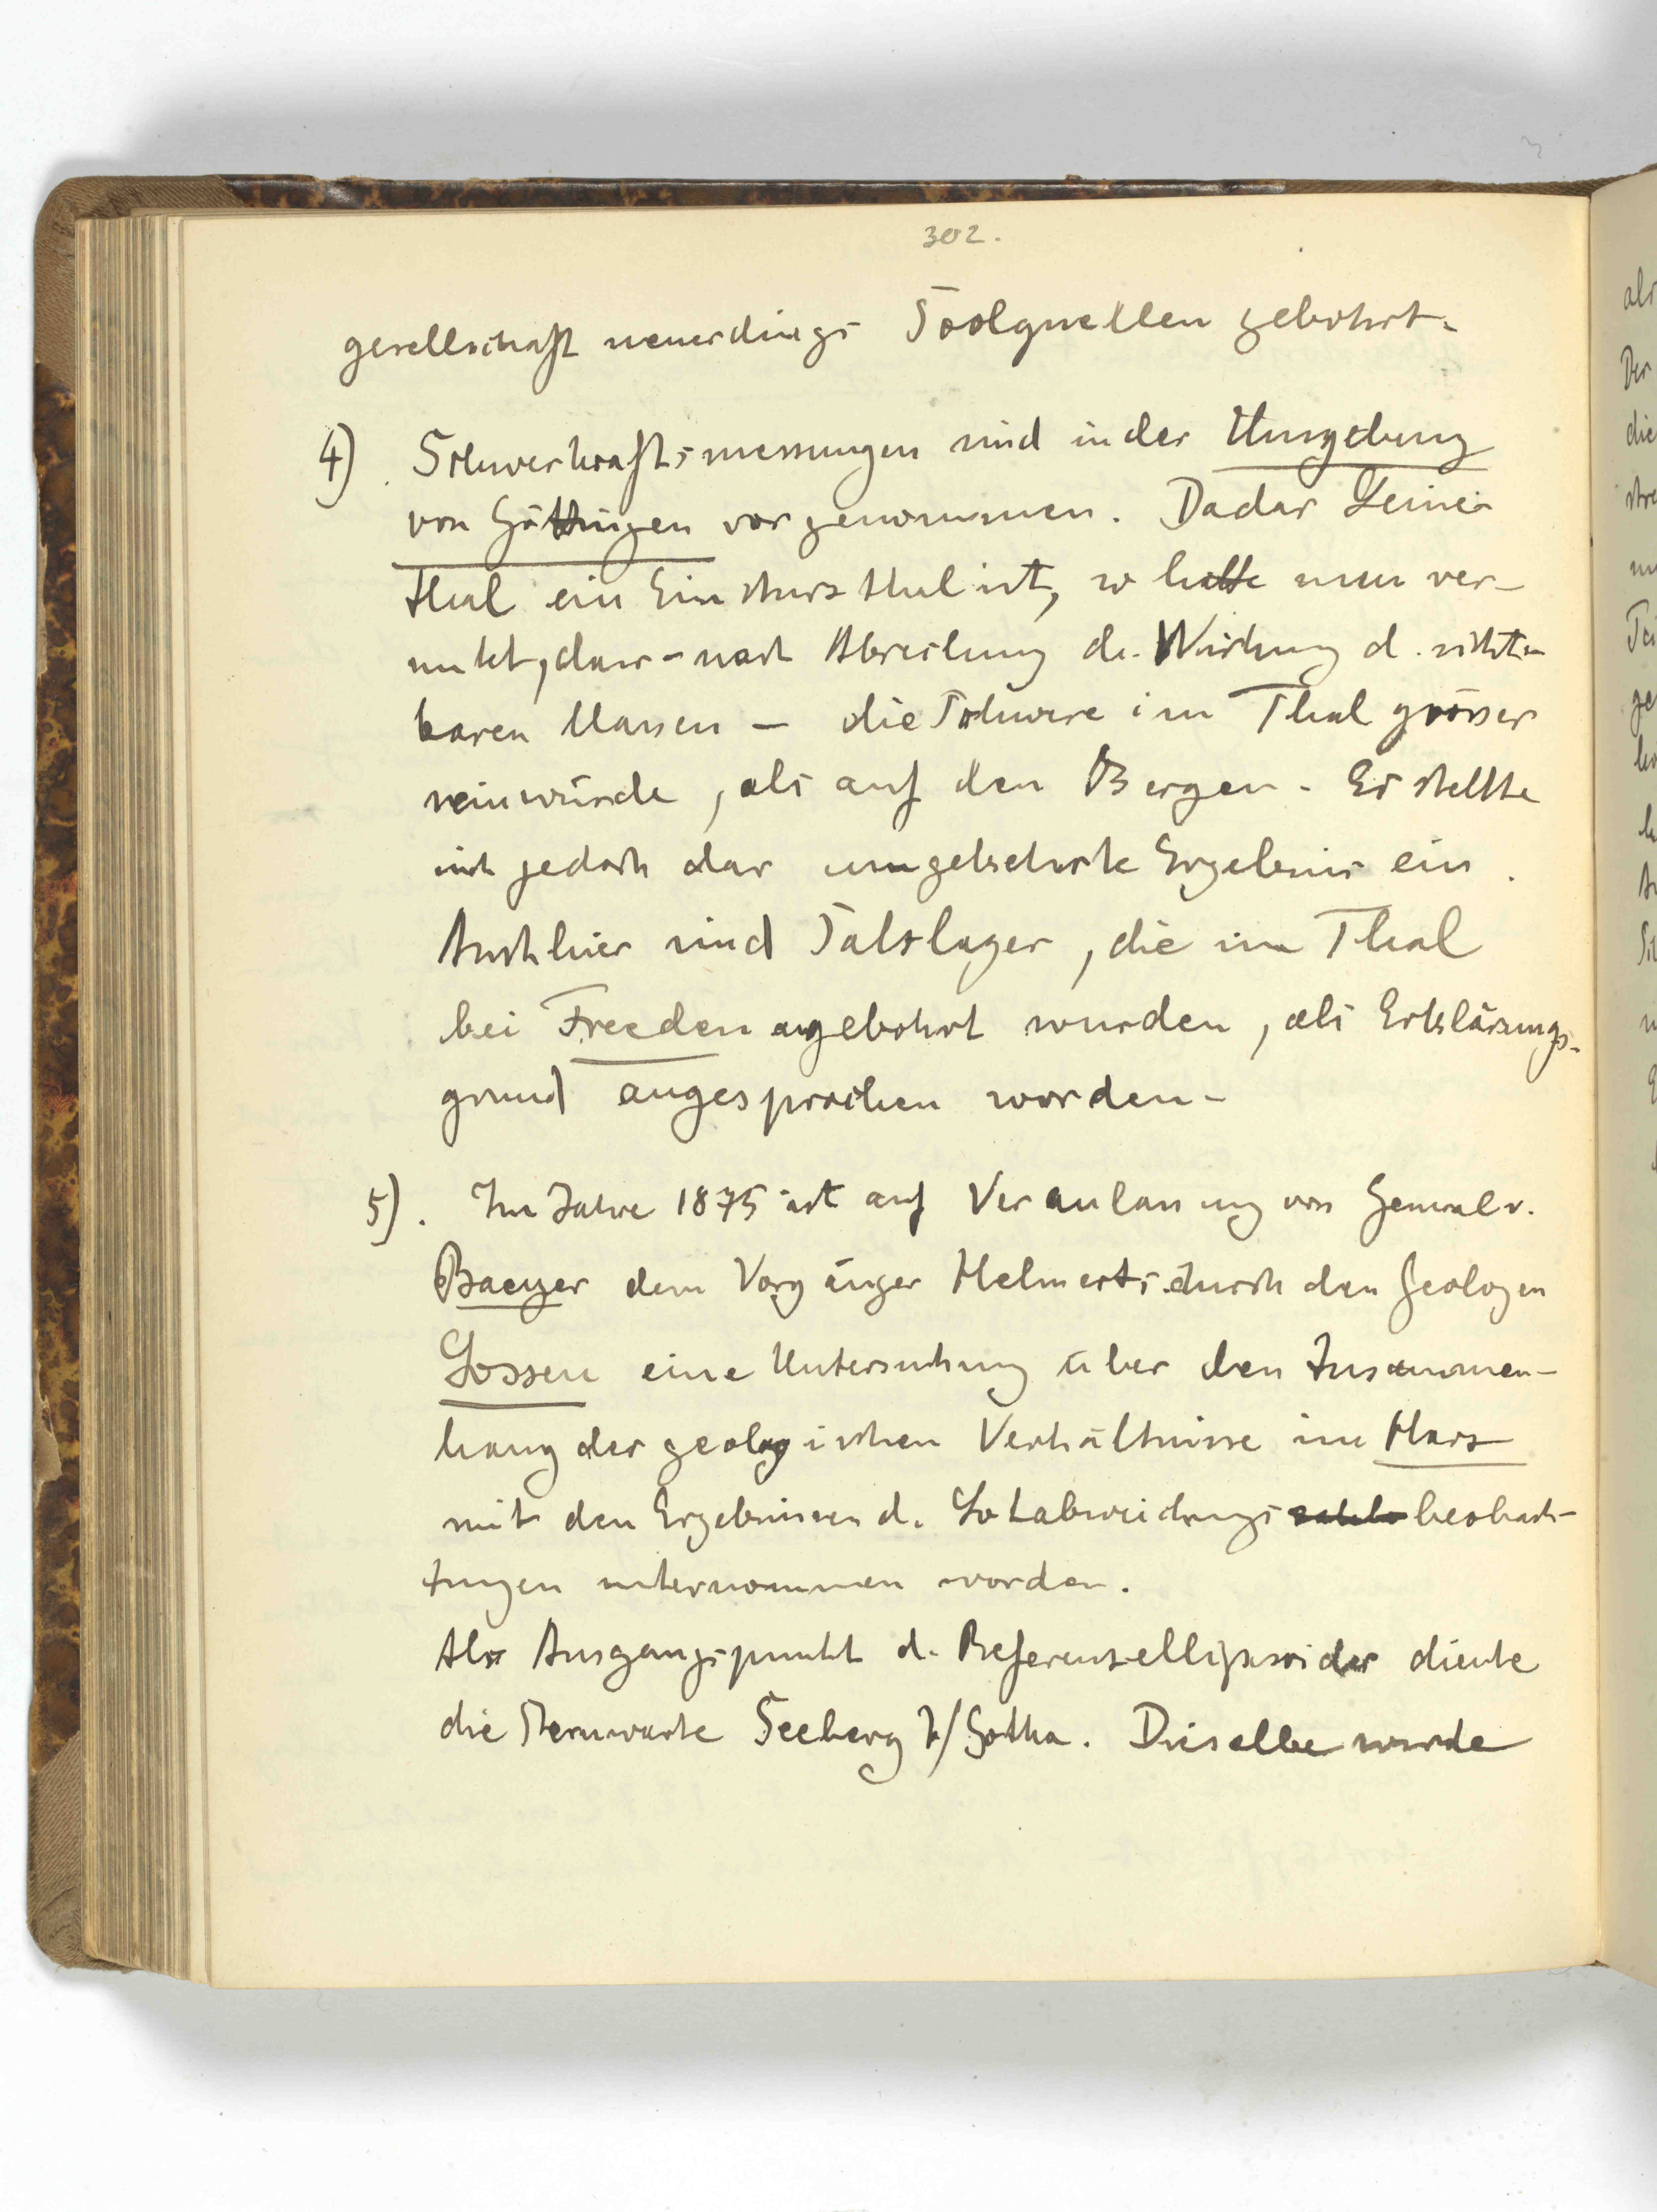 302.
gesellschaft neuerdings Soolquellen gebohrt.
4). Schwerkraftsmessungen sind in der Umgebung
von Göttingen vorgenommen. Da das Leine-
thal ein Einsturzthal ist, so hatte man ver-
mutet, dass - nach Abrechnung d. Wirkung d. sicht-
baren Massen - die Schwere im Thal grösser
sein würde, als auf den Bergen. Es stellte
sich jedoch das umgekehrte Ergebnis ein.
Auch hier sind Salzlager, die im Thal
bei Freeden angebohrt wurden, als Erklärungs-
grund angesprochen worden.
5). Im Jahre 1875 ist auf Veranlassung von General v.
Baeyer dem Vorgänger Helmerts durch den Geologen
Lossen eine Untersuchung über den Zusammen-
hang der geologischen Verhältnisse im Harz
mit den Ergebnissen d. Lotabweichungs beobach-
tungen unternommen worden.
Als Ausgangspunkt d. Referenzellipsoides diente
die Sternwarte Seeberg b/Gotha. Dieselbe wurde
als
Der
die